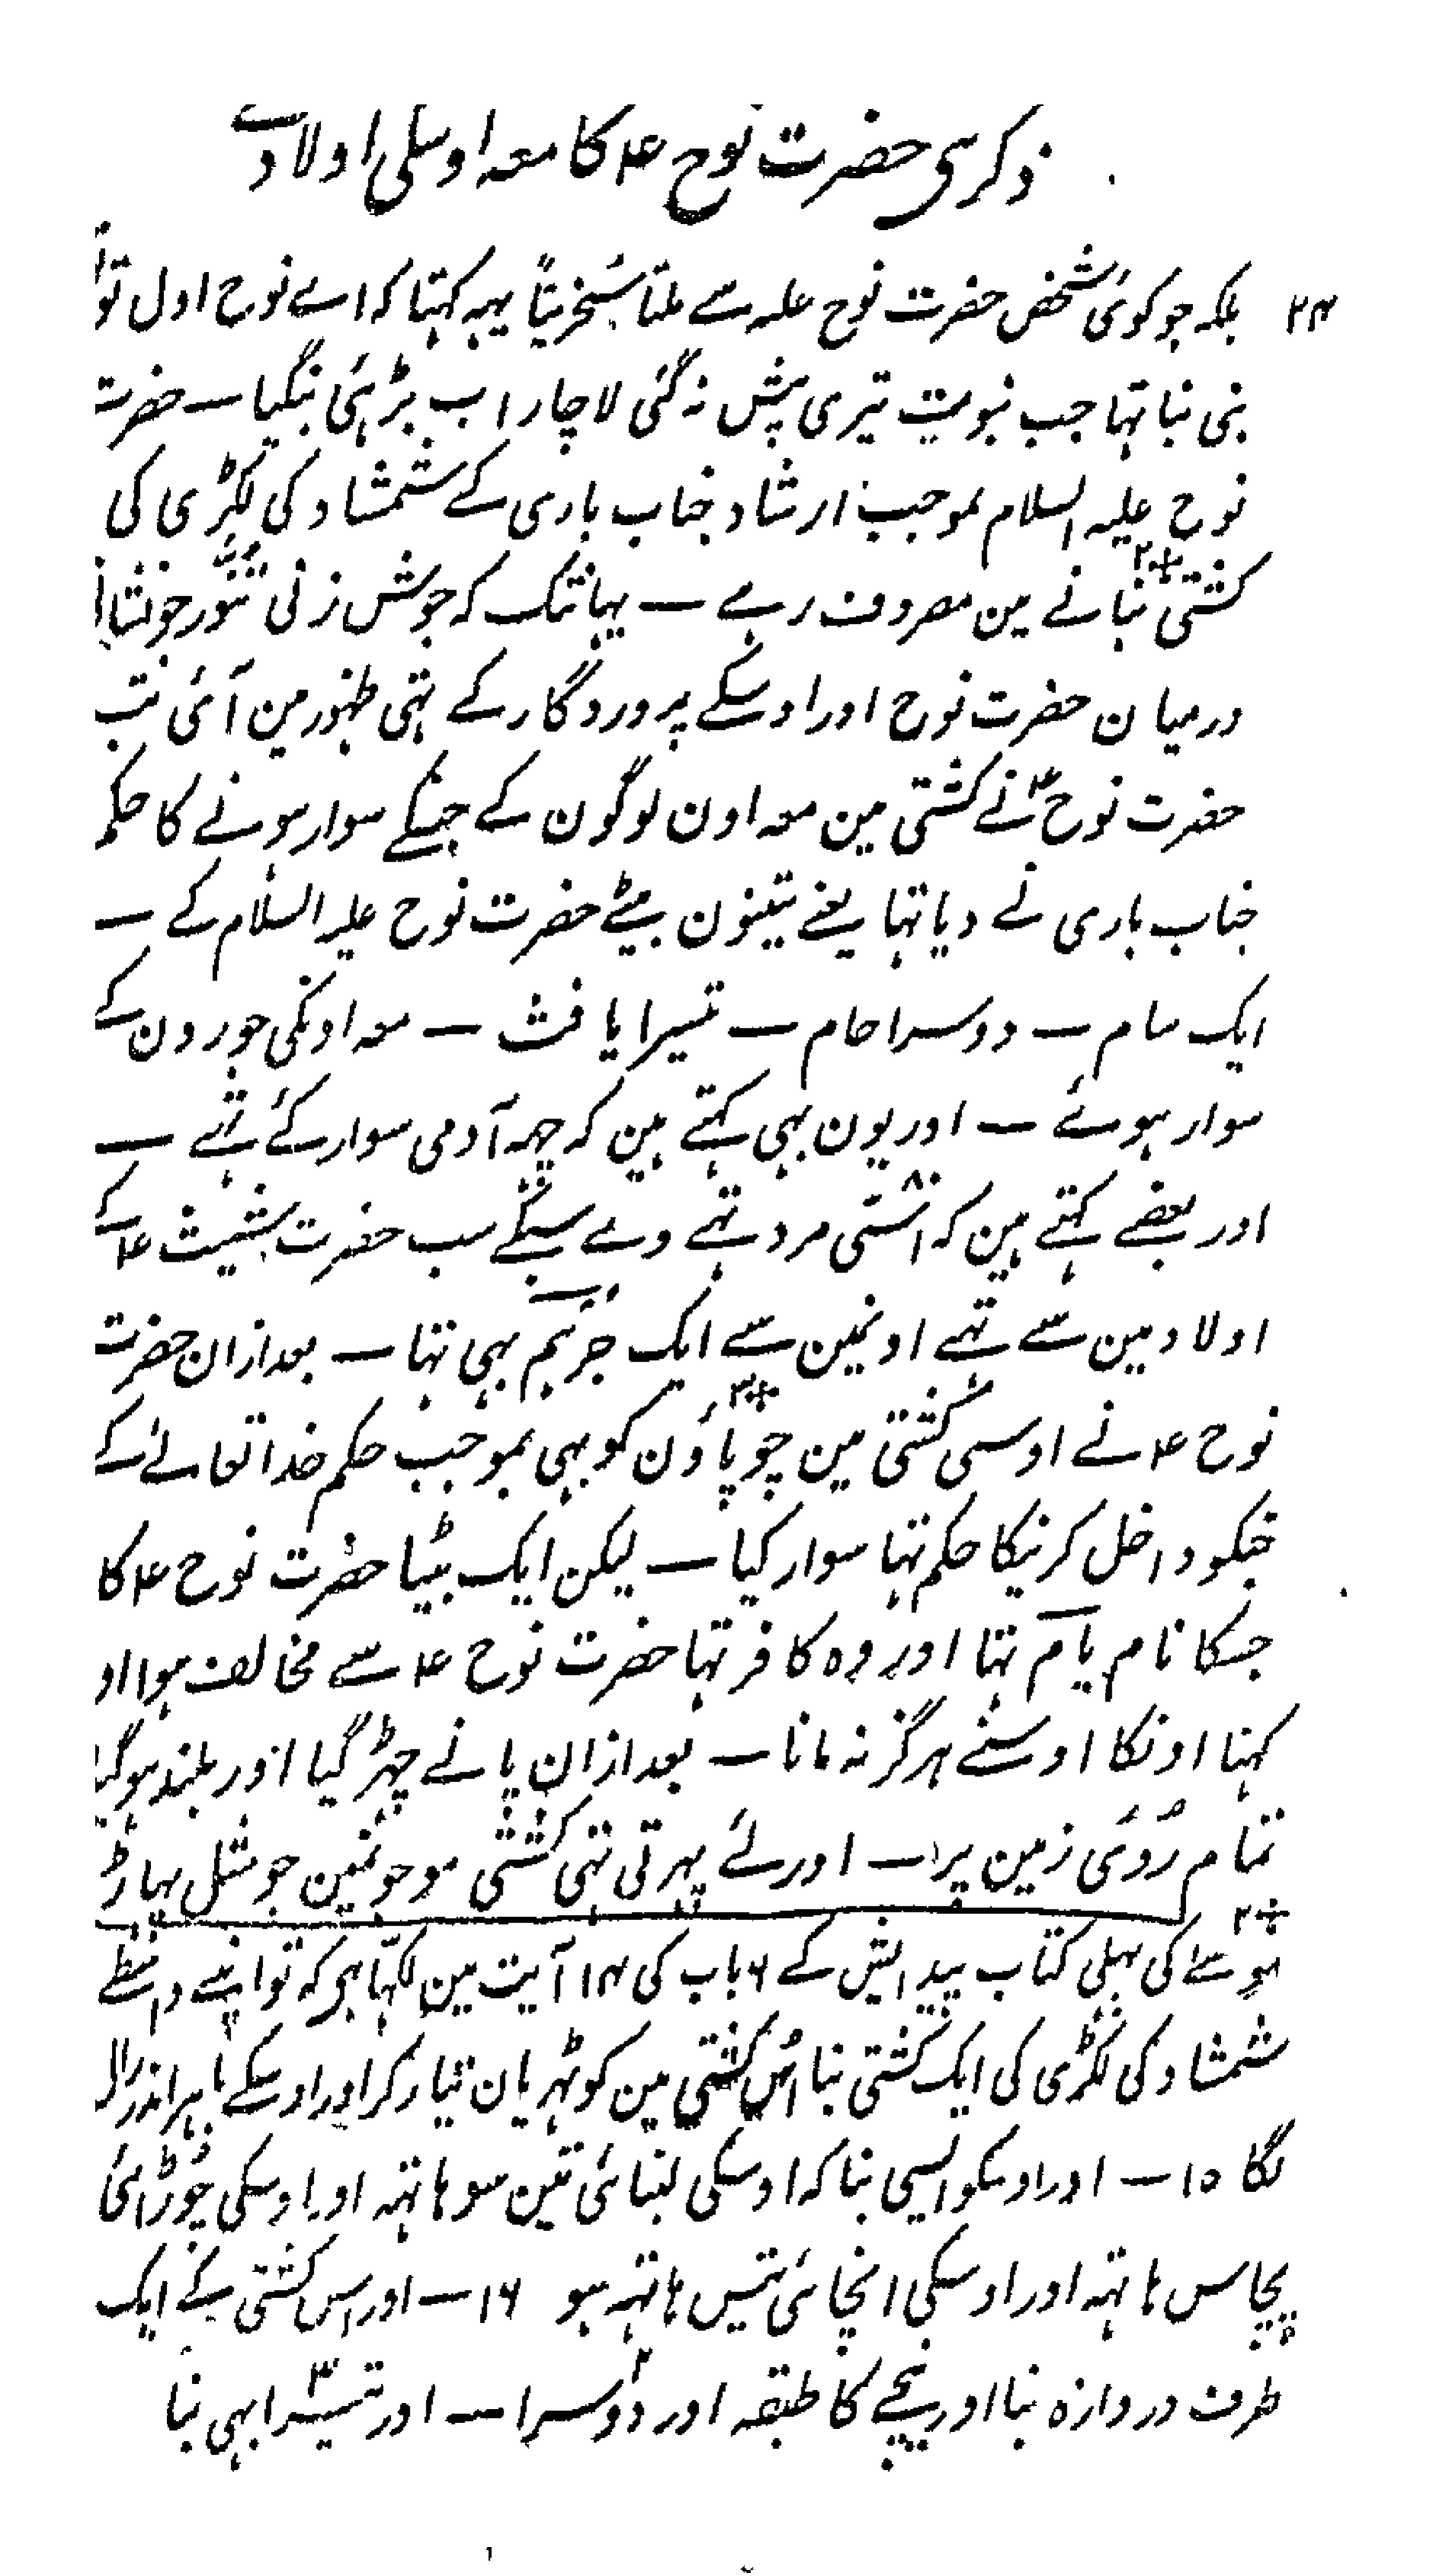 ذکر ہی حضرت نوح ۴ کا معہ اوسکی اولاد کے
۲۴ بلکہ جو کوئی شخص حضرت نوح علہ سے ملتا سُخریتاً یہہ کہتا کہ اے نوح اول تو
نبی بنا تہا جب نبویت تیری پیش نہ گئی لاچار اب بڑہئی بنگیا — حضرت
نوح علیہ السلام بموجب ارشاد جناب باری کے شمشاد کی لکڑی کی
کشتی ÷۲ بنانے مین مصروف رہے — یہانتک کہ جوش زنی تنّور جو نشان
درمیان حضرت نوح اور اوسکے پروردگار کے تہی ظہور مین آئی تب
حضرت نوح ؑ نے کشتی مین معہ اون لوگون کے جنکے سوار ہونے کا حکم
جناب باری نے دیا تہا یعنے تینون بیٹے حضرت نوح علیہ السلام کے —
ایک سام — دوسرا حام — تیسرا یافث — معہ اونکی جوروون کے
سوار ہوئے — اور یون بہی کہتے ہین کہ چہہ آدمی سوار کئے تہے —
اور بعضے کہتے ہین کہ اسّی ۸۰ مرد تہے وے سبکے سب حضرت شیث ۴ کے
اولاد مین سے تہے اونمین سے ایک جرہم بہی تہا — بعد ازان حضرت
نوح ۴ نے اوسی کشتی مین چوپاؤن ÷۳ کو بہی بموجب حکم خدا تعالےٰ کے
جنکو داخل کرنیکا حکم تہا سوار کیا — لیکن ایک بیٹا حضرت نوح ۴ کا
جسکا نام یام تہا اور وہ کافر تہا حضرت نوح ۴ سے مخالف ہوا او
کہنا اونکا اوسنے ہرگز نہ مانا — بعد ازان پانے چہڑ گیا اور بلند ہو گیا
تمام رُوئ زمین پر — اور لئے پہرتی تہی کشتی موجونمین جو مثل پہاڑ
÷۲ موسےٰ کی پہلی کتاب پیدایش کے ۶ باب کی ۱۴ آیت مین لکہا ہی کہ تو اپنے واسطے
شمشاد کی لکڑی کی ایک کشتی بنا اُس کشتی مین کوٹہریان تیار کر اور اوسکے باہر اندر رال
لگا ۱۵ — اور اوسکو ایسی بنا کہ اوسکی لنبائی تین سو ہاتہہ اور اوسکی چوڑائی
پچاس ہاتہہ اور اوسکی انچائی تیس ہاتہہ ہو ۱۶ — اور اس کشتی کے ایک
طرف دروازہ بنا اور نیچے کا طبقہ اور دوسرا ۲ — اور تیسرا ۳ بہی بنا